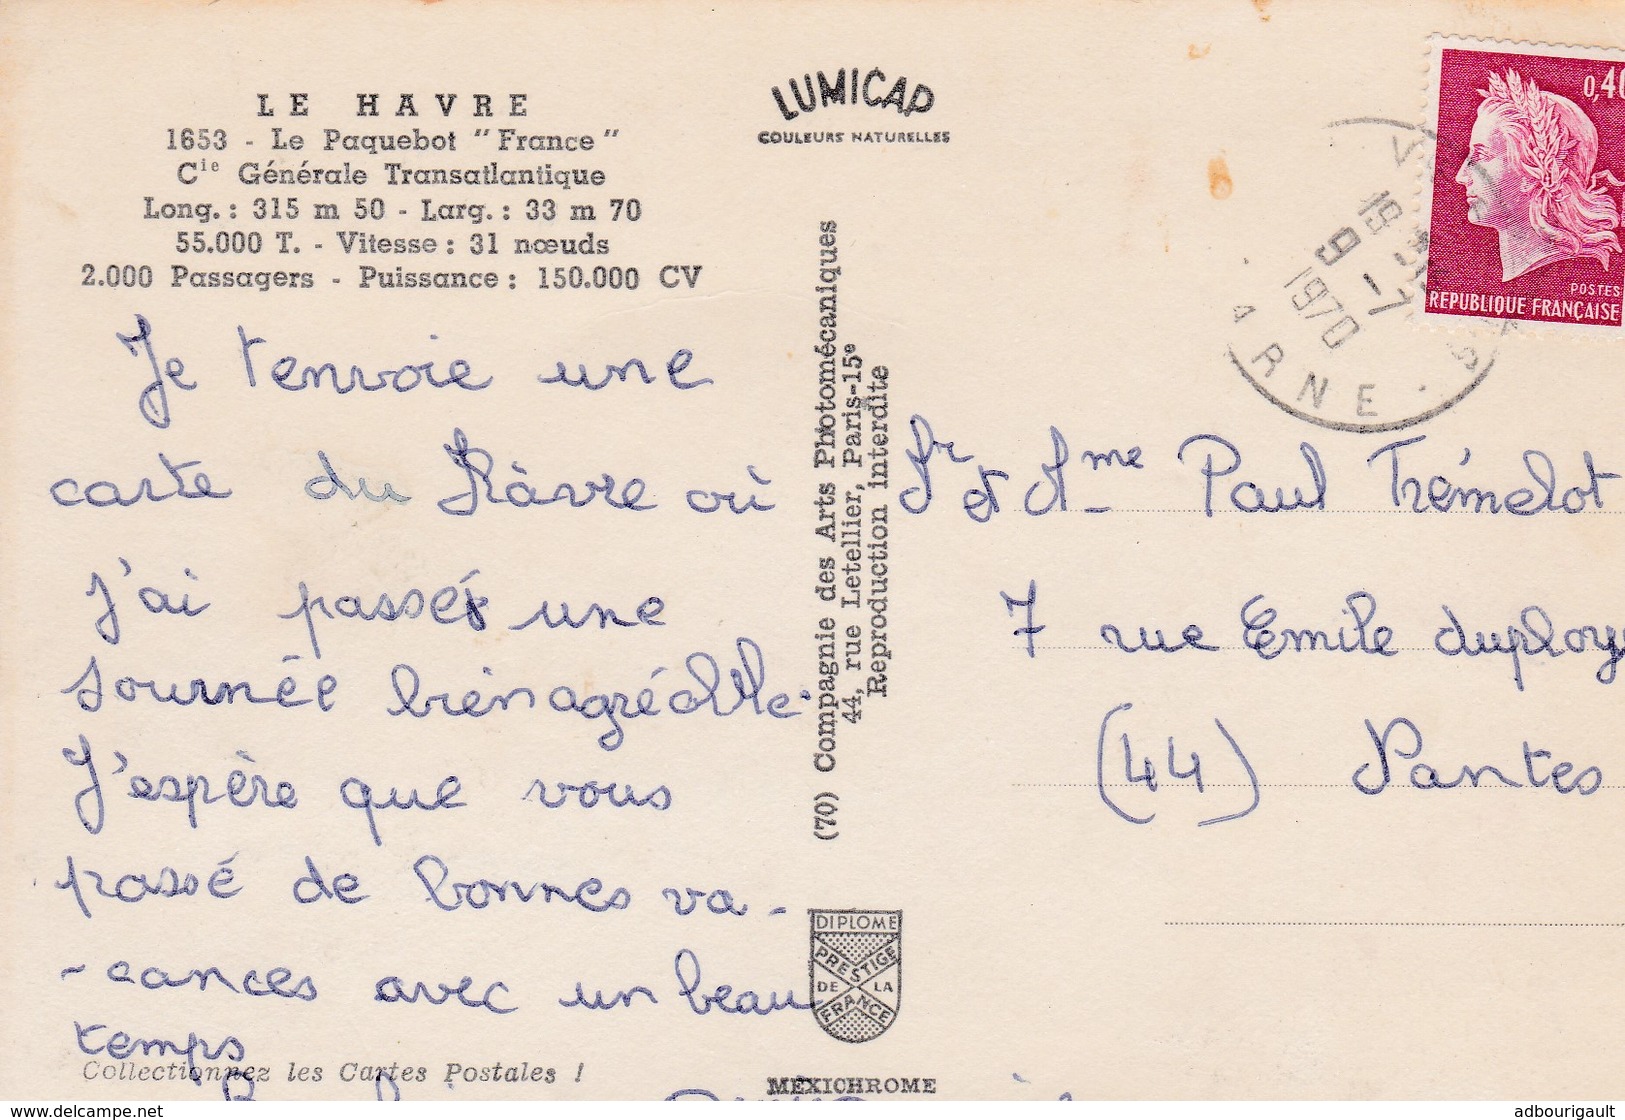 LE HAVRE
1653 - Le Paquebot "France"
Cie Générale Transatlantique
Long. : 315 m 50 - Larg. : 33 m 70
55.000 T. - Vitesse : 31 nœuds
2.000 Passagers - Puissance : 150.000 CV
Je t'envoie une
carte du Hâvre où
j'ai passé une
journée bien agréable.
J'espère que vous
passé de bonnes va-
-cances avec un beau
temps
Collectionnez les Cartes Postales !
LUMICAP
COULEURS NATURELLES
(70) Compagnie des Arts Photomécaniques
44, rue Letellier, Paris-15e
Reproduction interdite
DIPLOME
PRESTIGE
DE LA
FRANCE
MEXICHROME
0,40
POSTES
REPUBLIQUE FRANÇAISE
9 -7
1970
ARNE
Mr et Mme Paul Trémelot
7 rue Emile duploy
(44) Nantes
delcampe.net
adbourigault